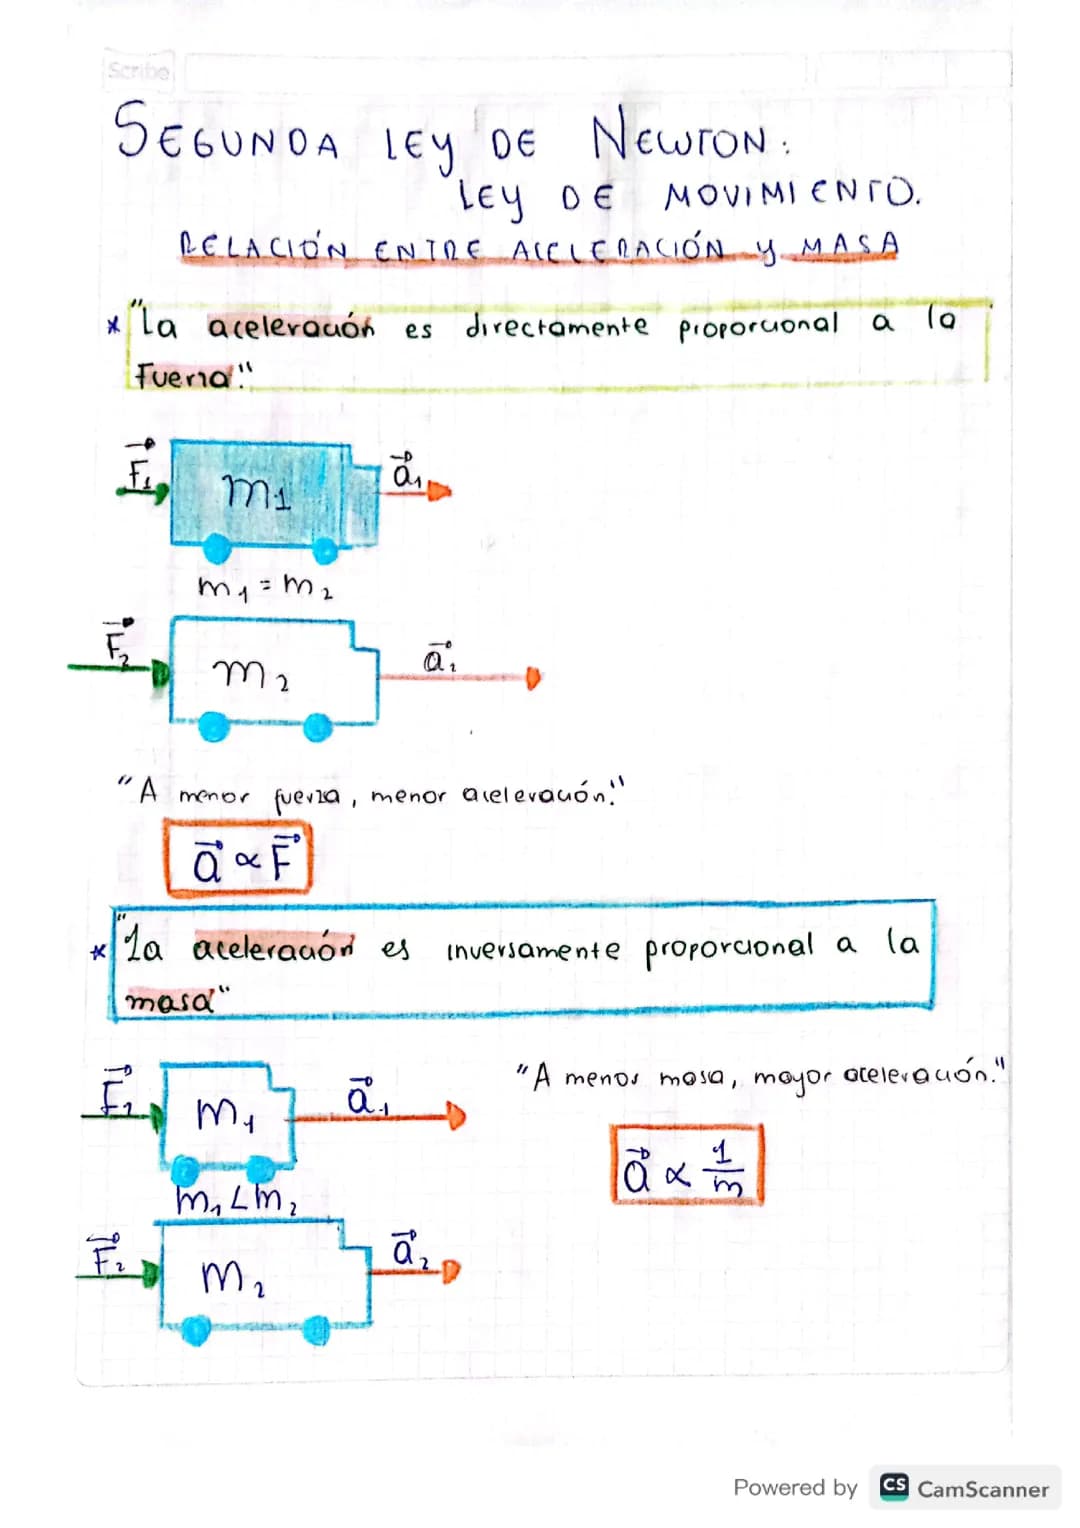 Scribe
SEGUNDA LEY DE NEWTON:
LEY DE MOVIMIENTO.
RELACIÓN ENTRE ACELERACIÓN y MASA
* "La aceleración es directamente proporcional a la
Fuerza."
F₁ m1 a₁
m₁ = m₂
F₂ m₂ a₂
"A menor fuerza, menor aceleración."
a ∝ F
* "La aceleración es inversamente proporcional a la
masa"
F₁ m₁ a₁
"A menor masa, mayor aceleración."
a ∝ 1/m
m₁ < m₂
F₂ m₂ a₂
Powered by CS CamScanner